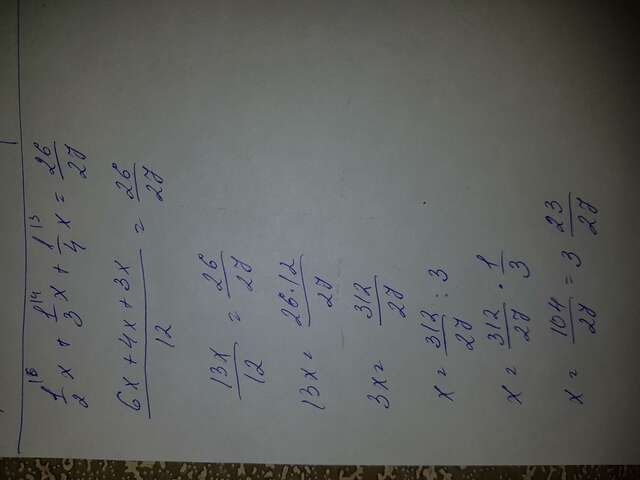 1/2 |6 x + 1/3 |4 x + 1/4 |3 x = 26/27
6x+4x+3x/12 = 26/27
13x/12 = 26/27
13x = 26·12/27
3x = 312/27
x = 312/27 : 3
x = 312/27 · 1/3
x = 104/27 = 3 23/27